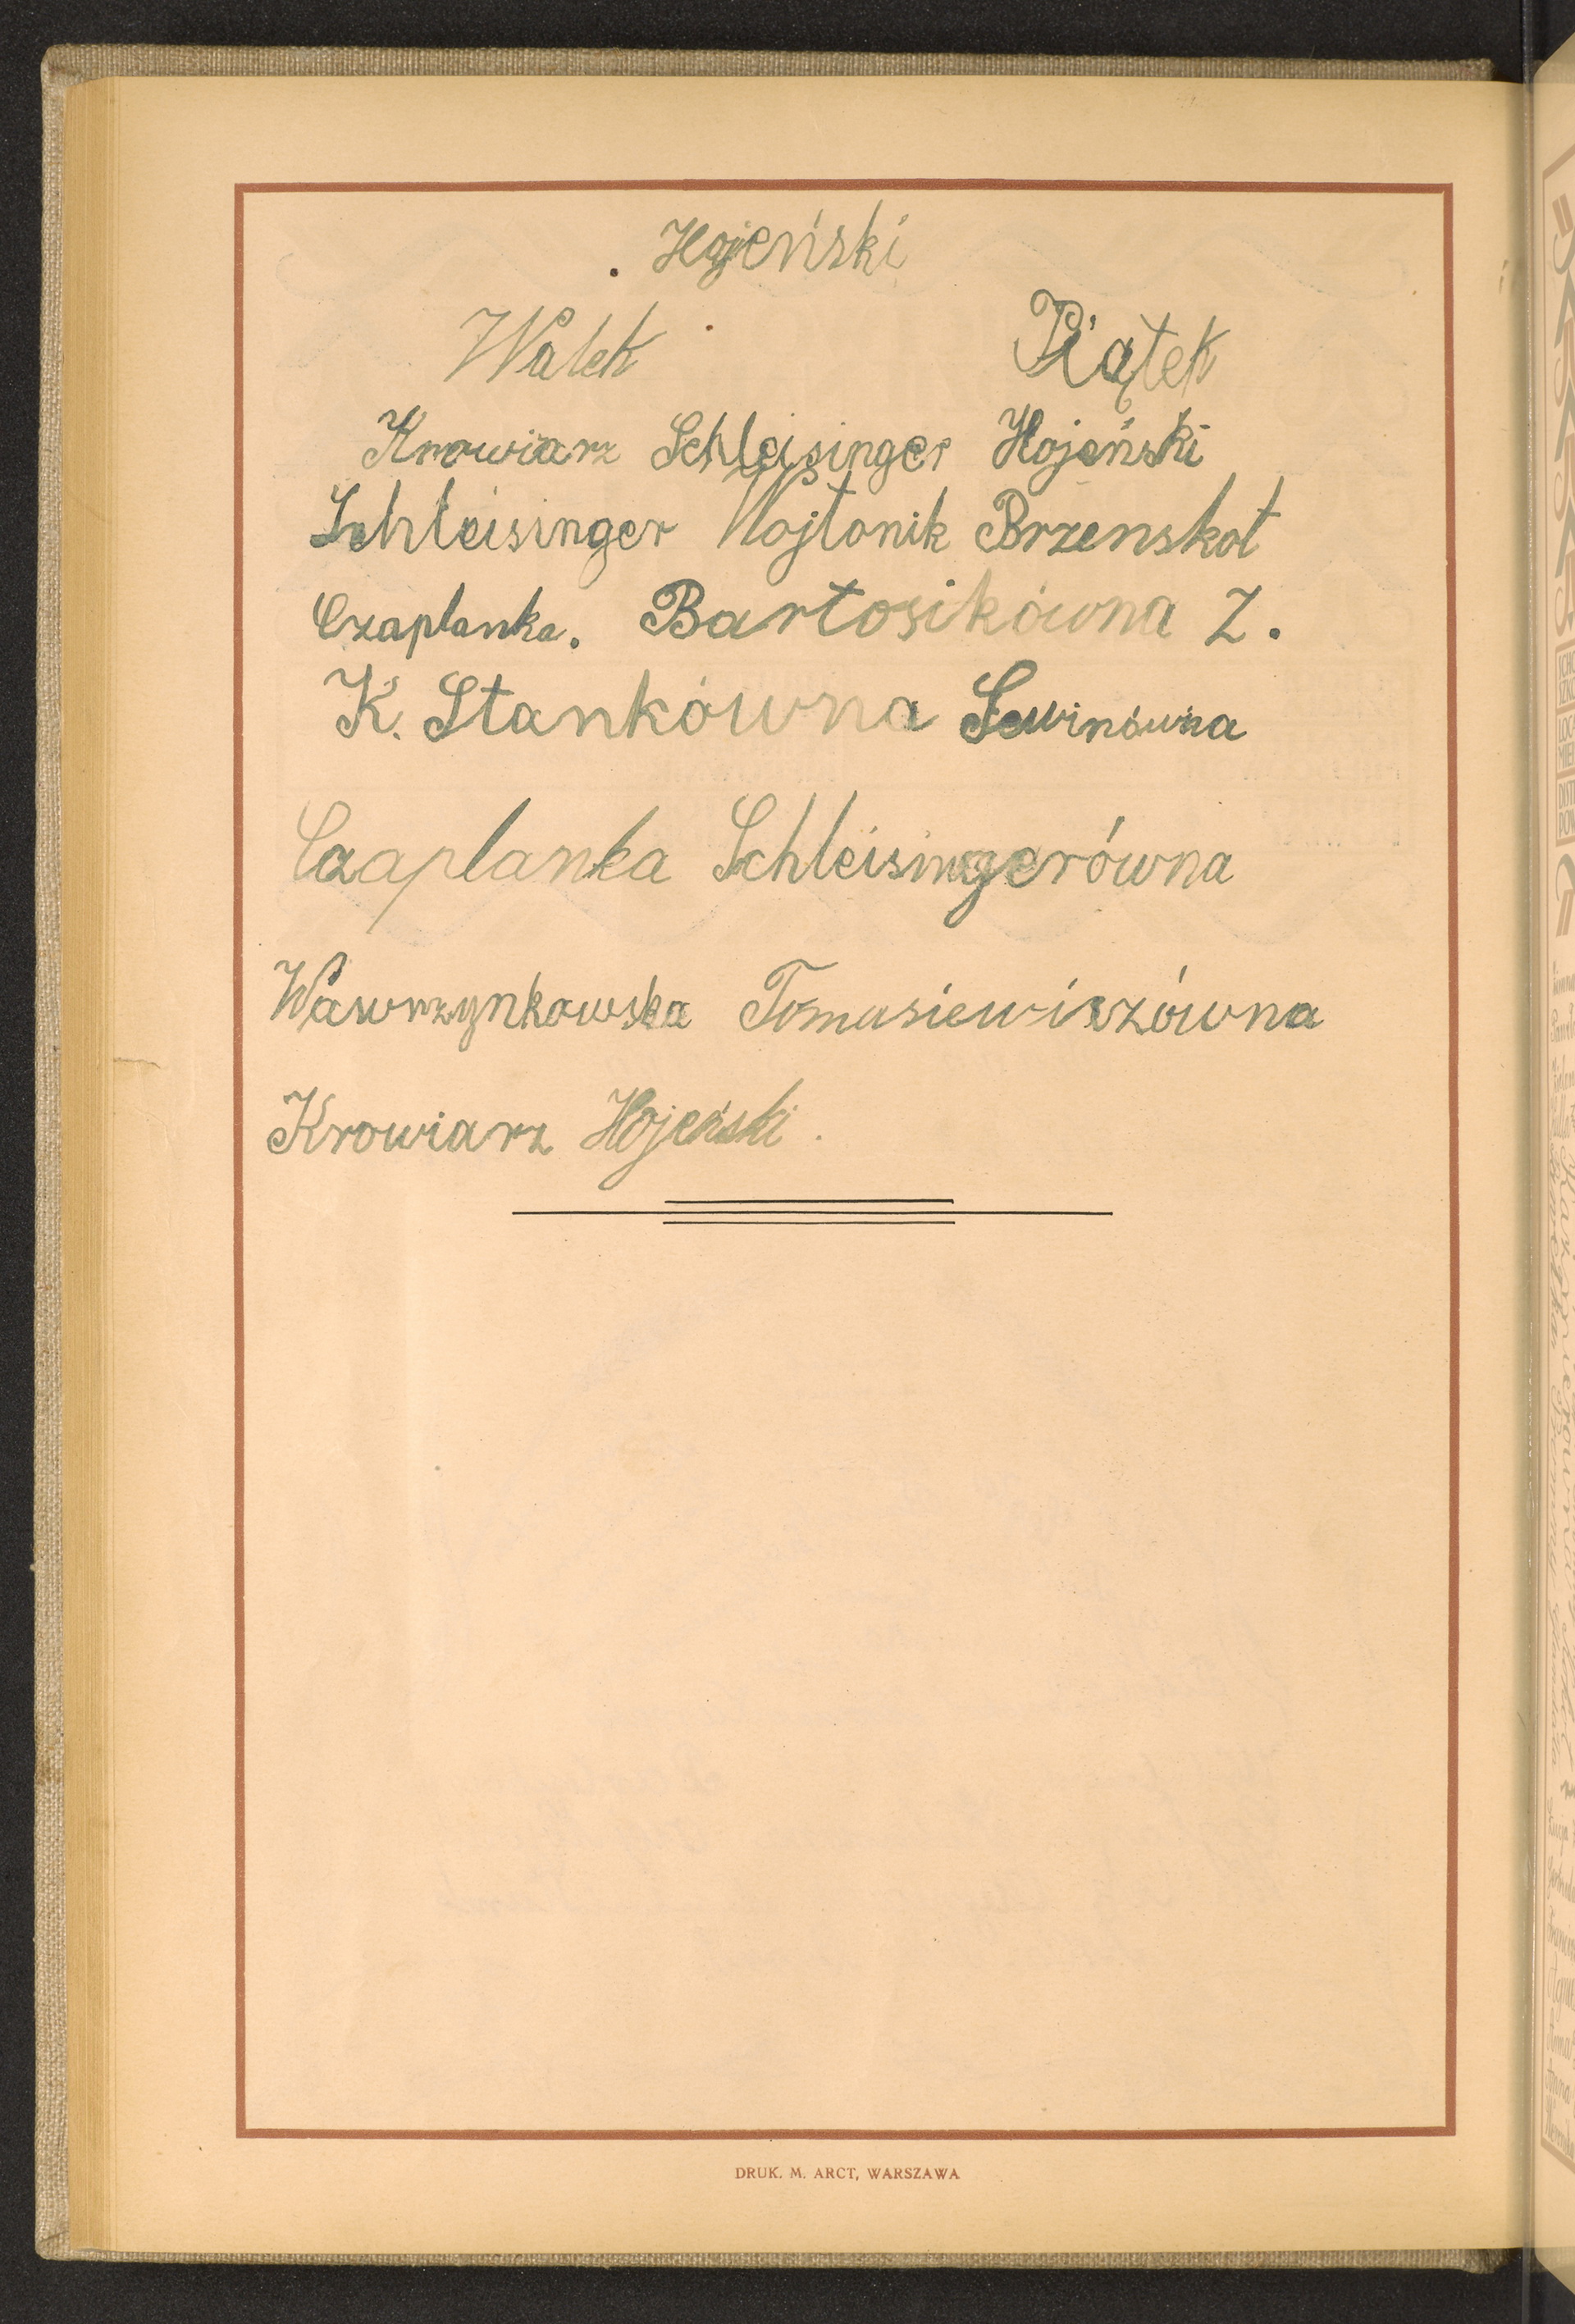 Hojeński
Walek Piątek
Krowiarz Schleisinger Hojeński
Schleisinger Wojtonik Brzenskot
Czaplanka. Bartosikówna Z.
K. Stankówna Sewinówna
Czaplanka Schleisingerówna
Wawrzynkowska Tomasiewiczówna
Krowiarz Hojeński.
DRUK. M. ARCT, WARSZAWA